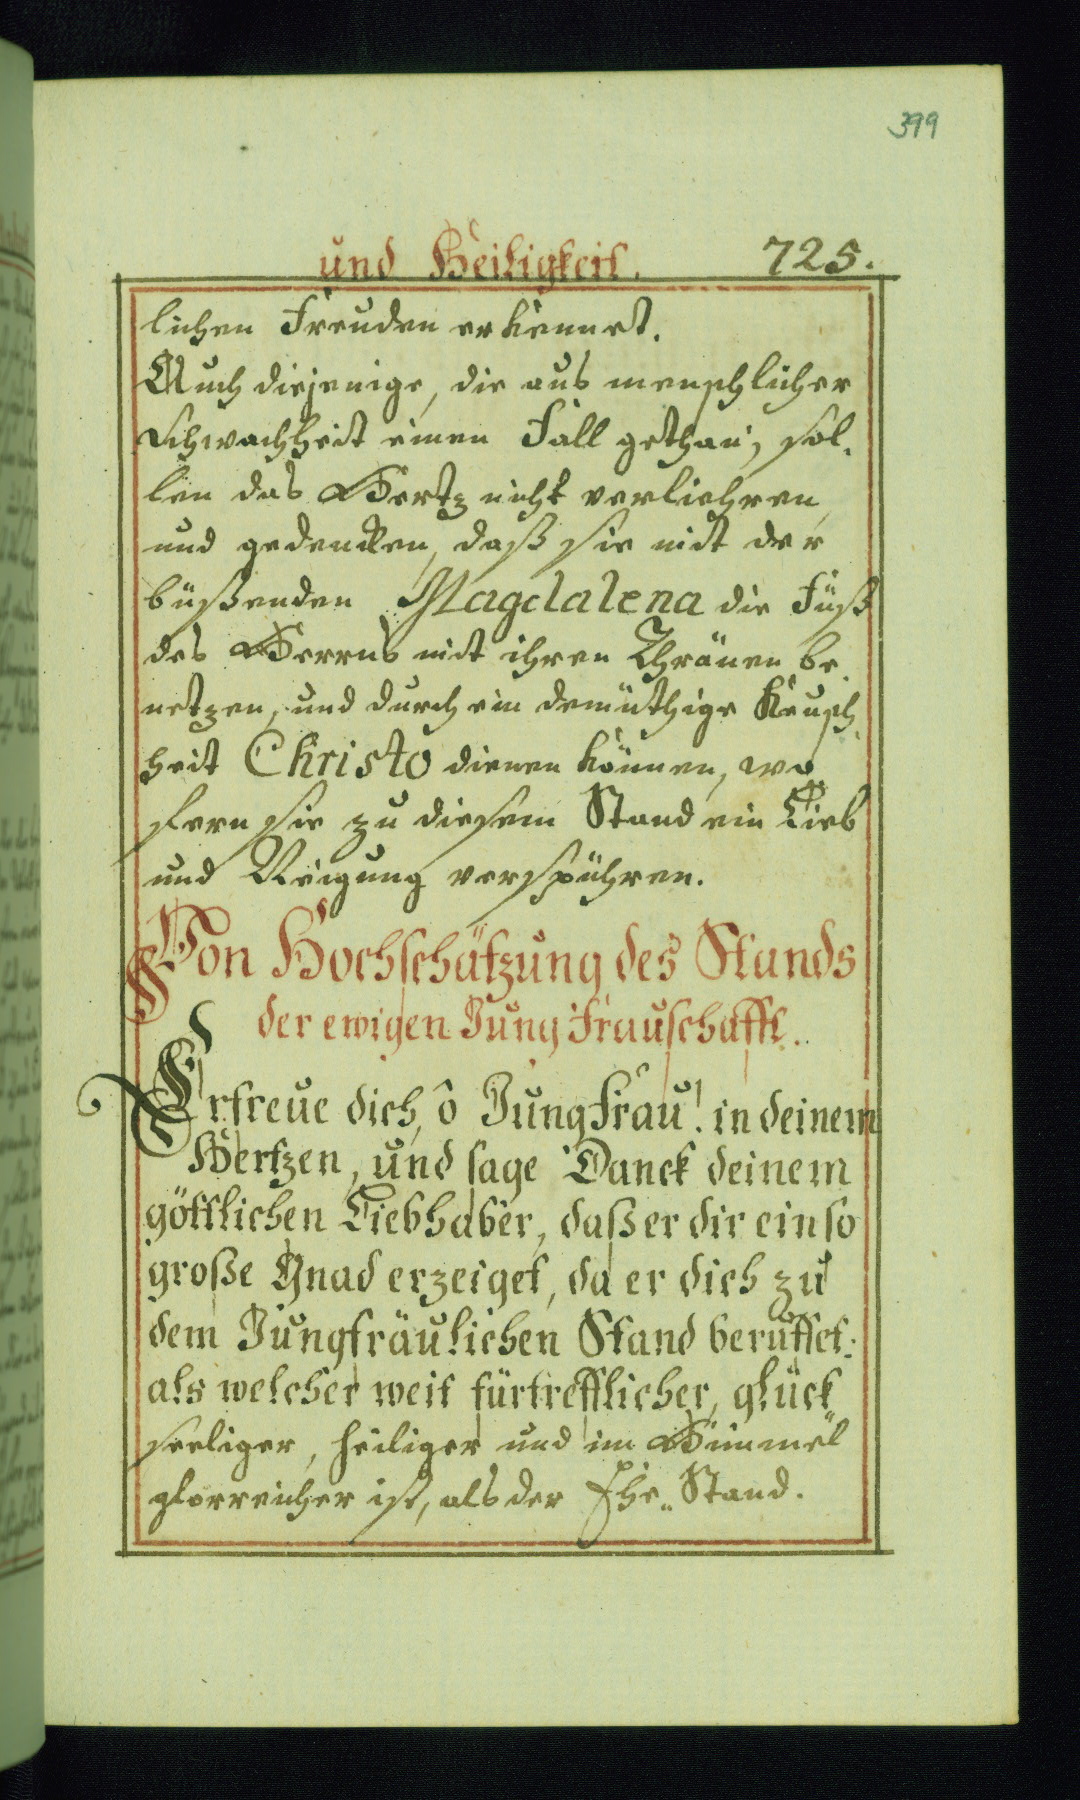 399
und Heiligkeit. 725.
lichen Freuden erkennet.
Auch diejenige, die aus menschlicher
Schwachheit einen Fall gethan, sol-
len das Hertz nicht verliehren,
und gedencken, daß sie mit der
büßenden Magdalena die Füß
des Herrns mit ihren Thränen be-
netzen, und durch ein demüthige Keusch-
heit Christo dienen können, wo
fern sie zu diesem Stand ein Lieb
und Neigung verspühren.
Von Hochschätzung des Stands
der ewigen Jungfrauschafft.
Erfreue dich, ô Jungfrau! in deinem
Hertzen, und sage Danck deinem
göttlichen Liebhaber, daß er dir ein so
große Gnad erzeiget, da er dich zu
dem Jungfräulichen Stand beruffet:
als welcher weit fürtrefflicher, glück
seeliger, heiliger und im Himmel
glorreicher ist, als der Ehe-Stand.